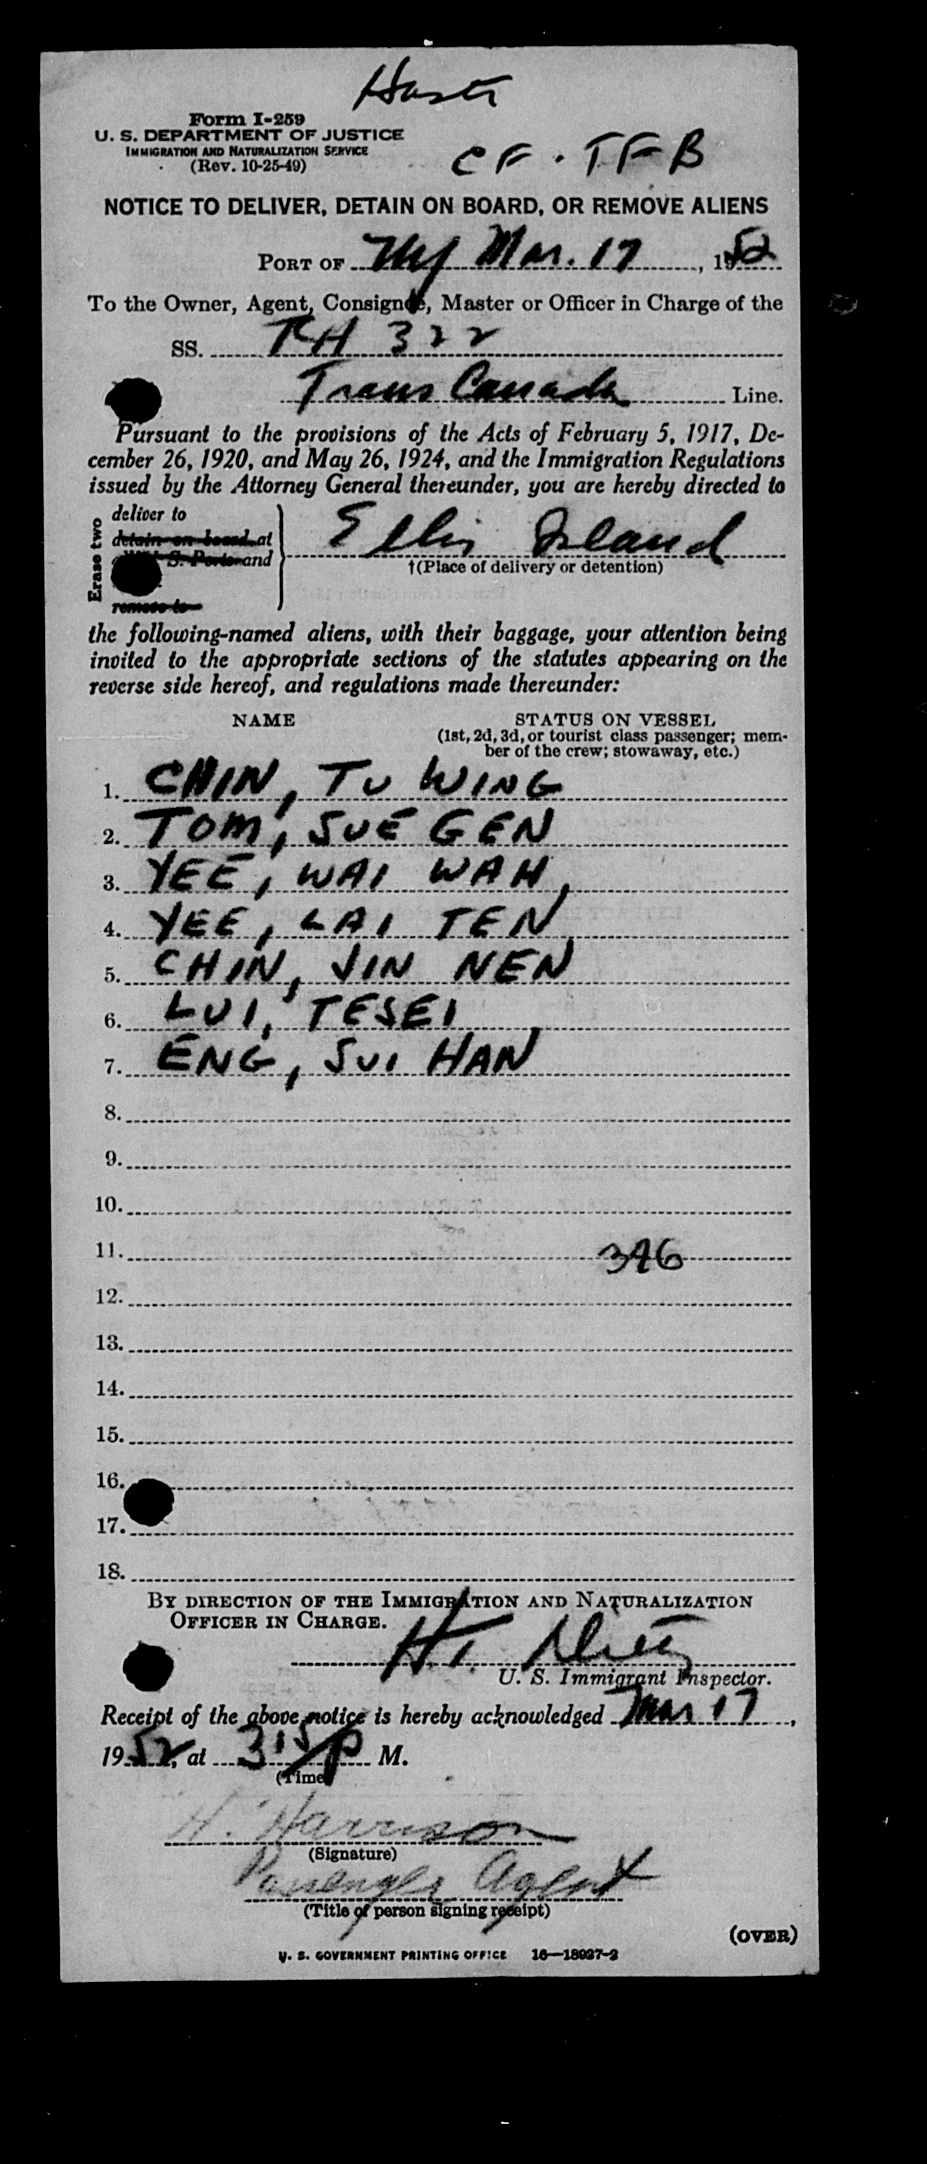 Form I-259
U. S. DEPARTMENT OF JUSTICE
IMMIGRATION AND NATURALIZATION SERVICE
(Rev. 10-25-49)
CF. TFB
NOTICE TO DELIVER, DETAIN ON BOARD, OR REMOVE ALIENS
PORT OF NY Mar. 17, 1952
To the Owner, Agent, Consignee, Master or Officer in Charge of the
SS. 322
Trans Canada Line.
Pursuant to the provisions of the Acts of February 5, 1917, De-
cember 26, 1920, and May 26, 1924, and the Immigration Regulations
issued by the Attorney General thereunder, you are hereby directed to
Erase two
deliver to
detain on board at
U. S. Ports and
remove to
Ellis Island
†(Place of delivery or detention)
the following-named aliens, with their baggage, your attention being
invited to the appropriate sections of the statutes appearing on the
reverse side hereof, and regulations made thereunder:
NAME STATUS ON VESSEL
(1st, 2d, 3d, or tourist class passenger; mem-
ber of the crew; stowaway, etc.)
1. CHIN, TU WING
2. TOM, SUE GEN
3. YEE, WAI WAH
4. YEE, LAI TEN
5. CHIN, JIN NEN
6. LUI, TESEI
7. ENG, SUI HAN
8.
9.
10.
11. 346
12.
13.
14.
15.
16.
17.
18.
BY DIRECTION OF THE IMMIGRATION AND NATURALIZATION
OFFICER IN CHARGE.
U. S. Immigrant Inspector.
Receipt of the above notice is hereby acknowledged Mar 17,
1952, at 315 P M.
(Time)
H. Harrison
(Signature)
Passenger Agent
(Title of person signing receipt)
(OVER)
U. S. GOVERNMENT PRINTING OFFICE 16—18937-2